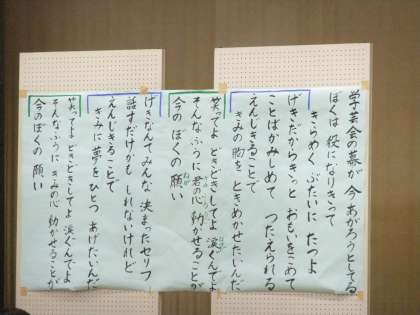 学芸会の幕が 今あがろうとしてる
ぼくは 役になりきって
きらめく ぶたいに たつよ
げきだからきっと おもいをこめて
ことばかみしめて つたえられる
えんじきることで
きみの胸を ときめかせたいんだ
笑ってよ どきどきしてよ 涙ぐんでよ
そんなふうに 君の心 動かせることが
今の ぼくの 願い
げきなんて みんな 決まったセリフ
話すだけかも しれないけれど
えんじきることで
きみに 夢をひとつ あげたいんだ
笑ってよ どきどきしてよ 涙ぐんでよ
そんなふうに きみの心 動かせることが
今のぼくの 願い